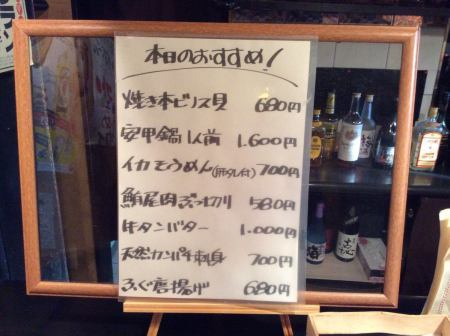 本日のおすすめ!
焼き本ビノス貝 680円
安甲鍋1人前 1.600円
イカそうめん(肝ダレ付) 700円
鮪尾肉ぶつ切り 580円
牛タンバター 1.000円
天然カンパチ刺身 700円
ふぐ唐揚げ 680円